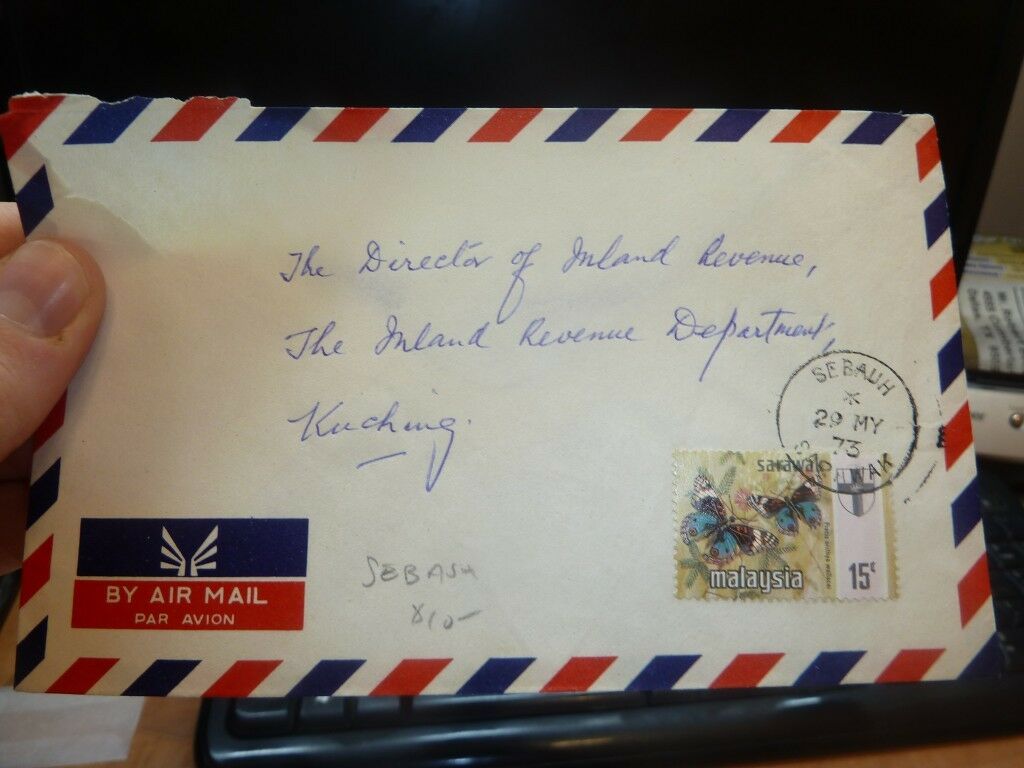 The Director of Inland Revenue,
The Inland Revenue Department,
Kuching.
SEBAUH
29 MY
73
SARAWAK
sarawak
malaysia
15¢
BY AIR MAIL
PAR AVION
SEBASH